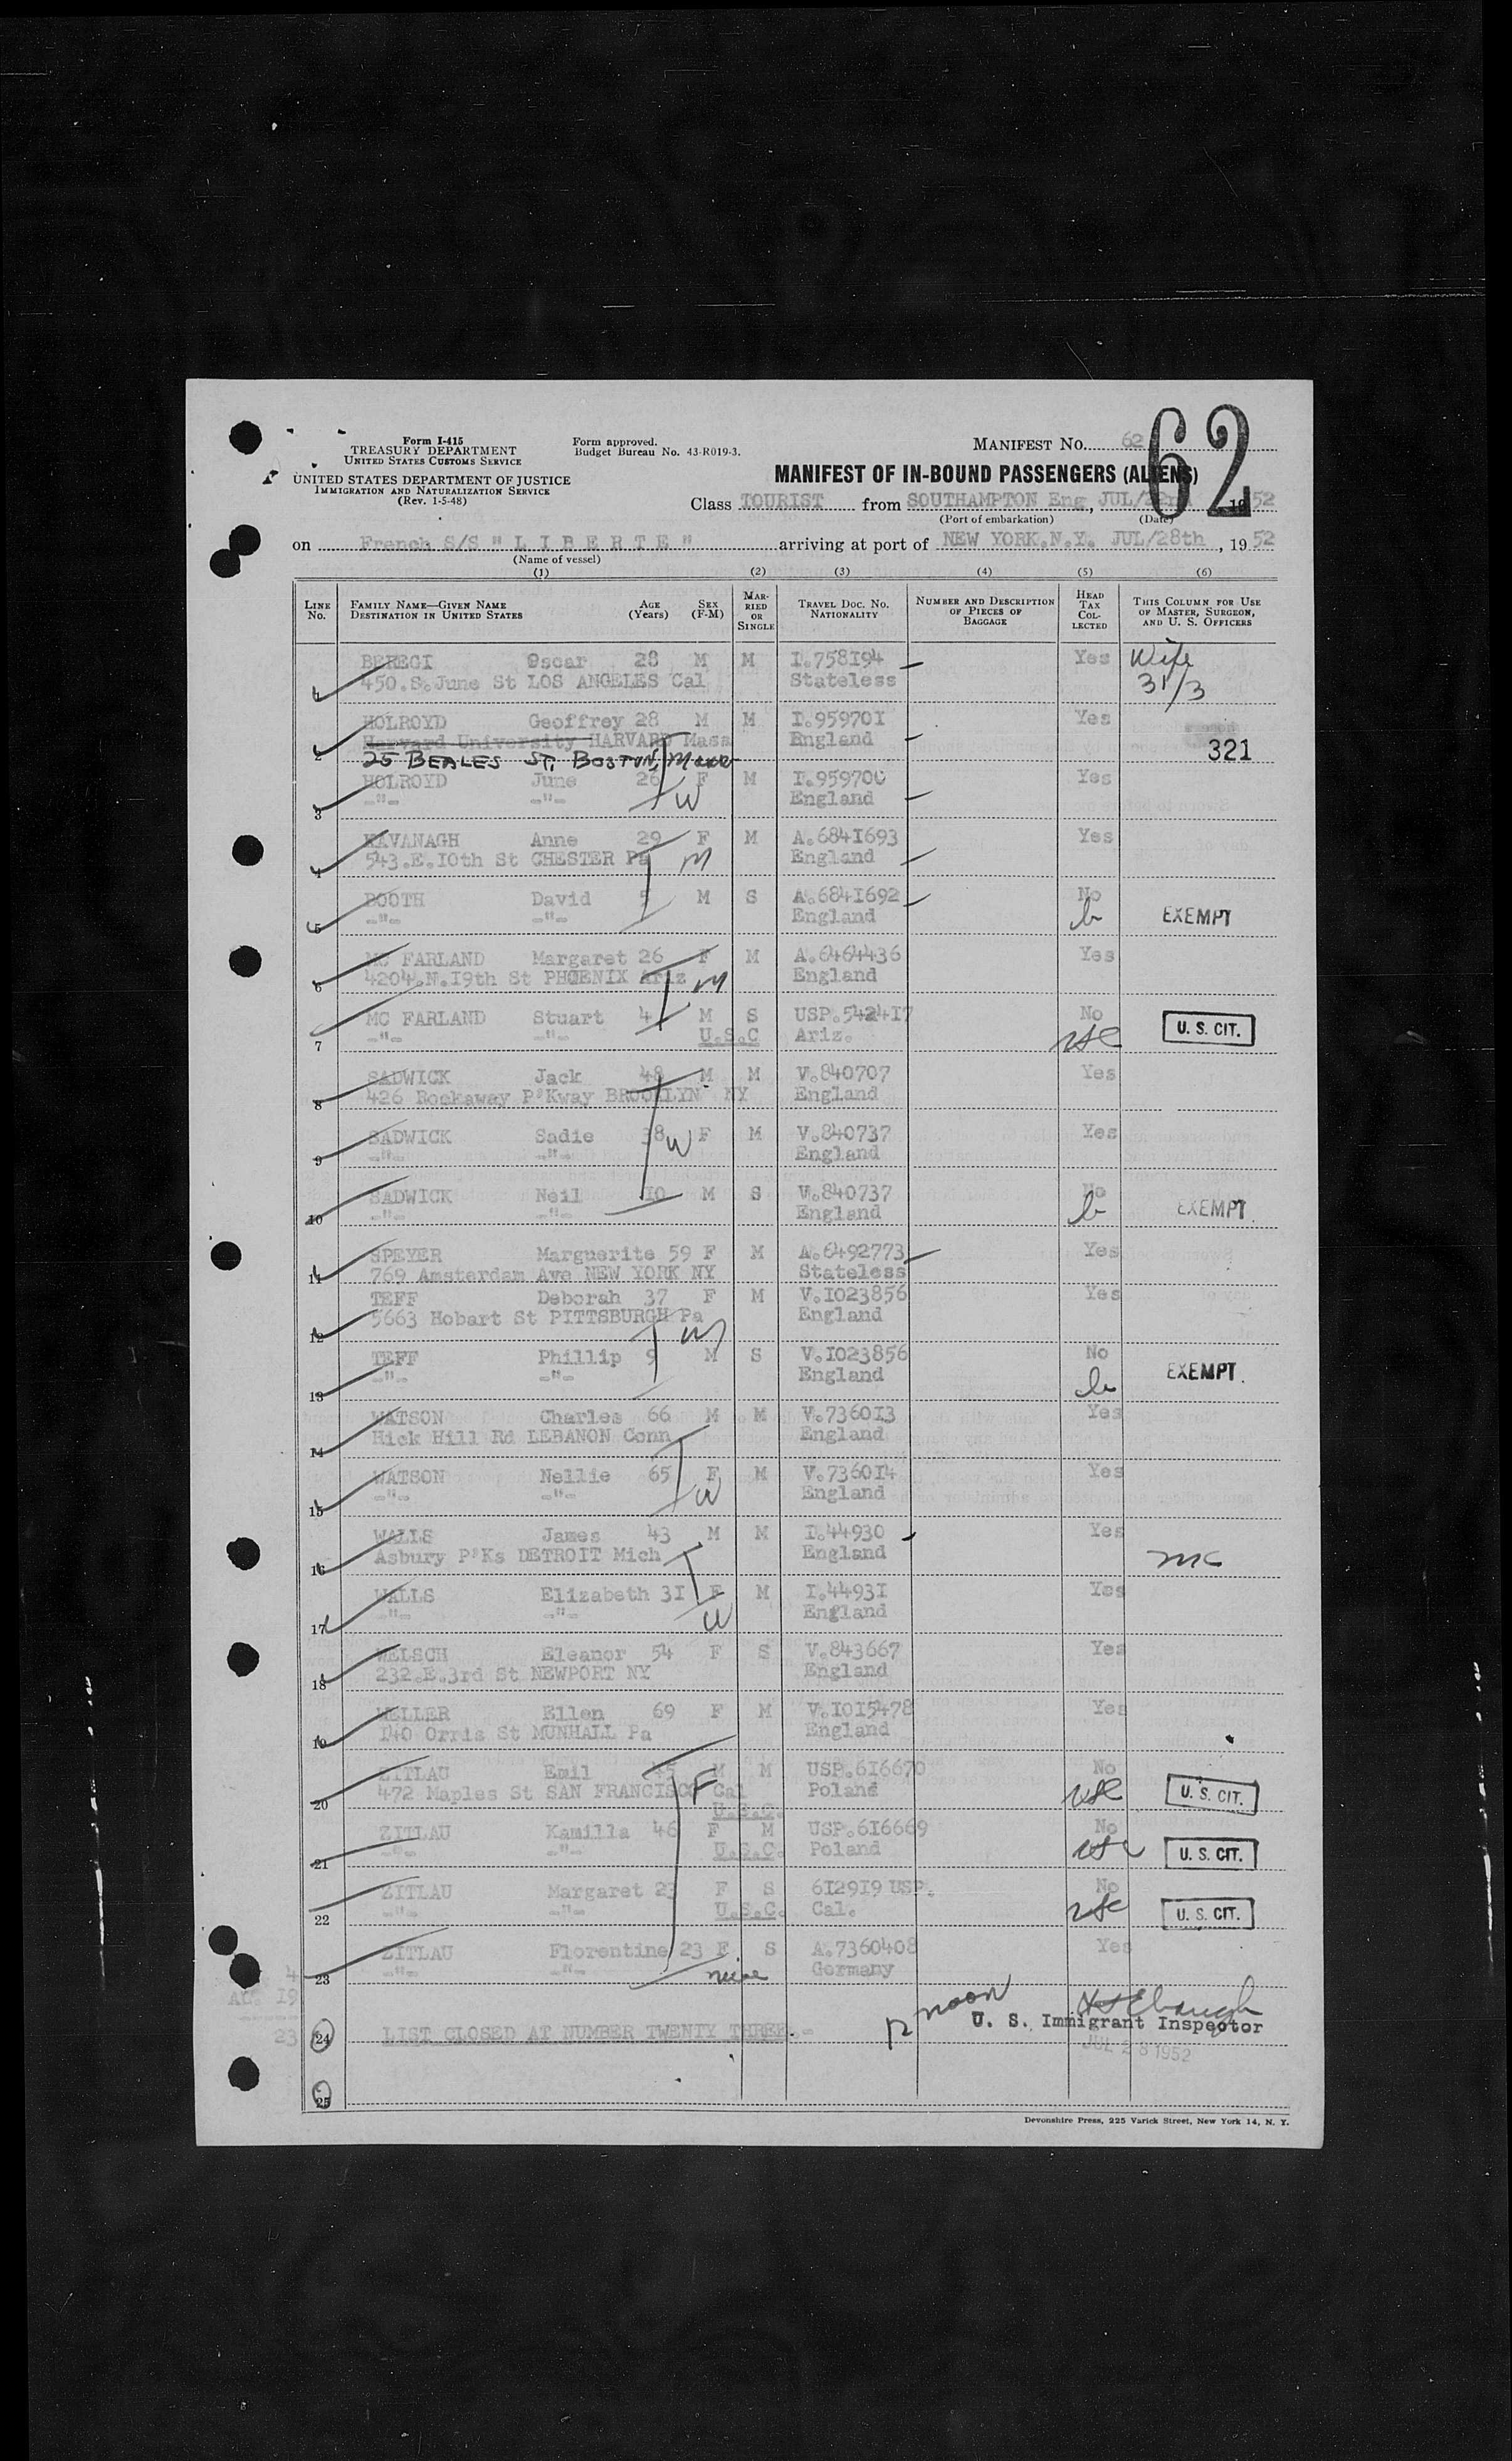 Form I-415
TREASURY DEPARTMENT
UNITED STATES CUSTOMS SERVICE
UNITED STATES DEPARTMENT OF JUSTICE
IMMIGRATION AND NATURALIZATION SERVICE
(Rev. 1-5-48)
Form approved.
Budget Bureau No. 43-R019-3.
MANIFEST NO. 62
62
MANIFEST OF IN-BOUND PASSENGERS (ALIENS)
Class TOURIST from SOUTHAMPTON Eng, JUL/22nd 1952
(Port of embarkation) (Date)
on French S/S " L I B E R T E " arriving at port of NEW YORK.N.Y. JUL/28th, 1952
(Name of vessel)
(1) (2) (3) (4) (5) (6)
LINE No. FAMILY NAME—GIVEN NAME DESTINATION IN UNITED STATES AGE (Years) SEX (F-M) MARRIED OR SINGLE TRAVEL DOC. NO. NATIONALITY NUMBER AND DESCRIPTION OF PIECES OF BAGGAGE HEAD TAX COLLECTED THIS COLUMN FOR USE OF MASTER, SURGEON, AND U. S. OFFICERS
BEREGI Oscar 28 M M I.758194 Yes Wife
1 450.S.June St LOS ANGELES Cal Stateless 31/3
HOLROYD Geoffrey 28 M M I.959701 Yes
2 Harvard University HARVARD Mass England 321
25 BEALES ST, BOSTON, Mass
HOLROYD June 26 F M I.959700 Yes
3 -"- -"- W England
KAVANAGH Anne 29 F M A.6841693 Yes
4 543.E.10th St CHESTER Pa M England
BOOTH David 5 M S A.6841692 No
5 -"- -"- England b EXEMPT
MC FARLAND Margaret 26 F M A.6464436 Yes
6 4204.N.19th St PHOENIX Ariz M England
MC FARLAND Stuart 4 M S USP.542417 No
7 -"- -"- U.S.C Ariz. USC U. S. CIT.
SADWICK Jack 48 M M V.840707 Yes
8 426 Rockaway P'Kway BROOKLYN NY England
SADWICK Sadie 38 W F M V.840737 Yes
9 -"- -"- England
SADWICK Neil 10 M S V.840737 No
10 -"- -"- England b EXEMPT
SPEYER Marguerite 59 F M A.6492773 Yes
11 769 Amsterdam Ave NEW YORK NY Stateless
TEFF Deborah 37 F M V.1023856 Yes
12 5663 Hobart St PITTSBURGH Pa M England
TEFF Phillip 9 M S V.1023856 No
13 -"- -"- England b EXEMPT.
WATSON Charles 66 M M V.736013 Yes
14 Hick Hill Rd LEBANON Conn England
WATSON Nellie 65 F M V.736014 Yes
15 -"- -"- W England
WALLS James 43 M M I.44930 Yes
16 Asbury P'Ks DETROIT Mich England
WALLS Elizabeth 31 F M I.44931 Yes
17 -"- -"- W England
WELSCH Eleanor 54 F S V.843667 Yes
18 232.E.3rd St NEWPORT NY England
WELLER Ellen 69 F M V.1015478 Yes
19 140 Orris St MUNHALL Pa England
ZITLAU Emil 45 M M USP.616670 No
20 472 Maples St SAN FRANCISCO Cal F Poland USC U. S. CIT.
U.S.C.
ZITLAU Kamilla 46 F M USP.616669 No
21 -"- -"- U.S.C. Poland USC U. S. CIT.
ZITLAU Margaret 23 F S 612919 USP. No
22 -"- -"- U.S.C. Cal. USC U. S. CIT.
ZITLAU Florentine 23 F S A.7360408 Yes
23 -"- -"- niece Germany
4
19
23
12 noon
U. S. Immigrant Inspector
24 LIST CLOSED AT NUMBER TWENTY THREE.-
JUL 28 1952
25
Devonshire Press, 225 Varick Street, New York 14, N. Y.